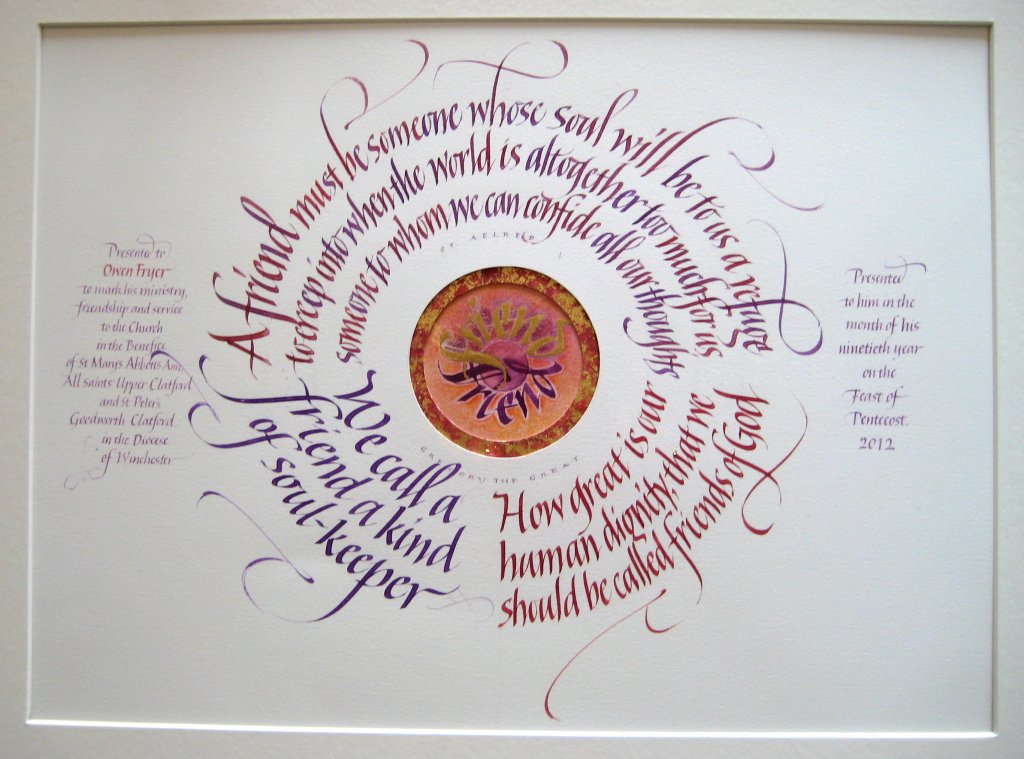 Presented to
Owen Fryer
to mark his ministry,
friendship and service
to the Church
in the Benefice
of St Marys Abbotts Ann
All Saints Upper Clatford
and St Peters
Goodworth Clatford
in the Diocese
of Winchester
A friend must be someone whose soul will be to us a refuge
to creep into when the world is altogether too much for us,
someone to whom we can confide all our thoughts
ST. AELRED
friend
friend
We call a
friend a kind
of soul-keeper
GREGORY THE GREAT
How great is our
human dignity, that we
should be called friends of God
Presented
to him in the
month of his
ninetieth year
on the
Feast of
Pentecost.
2012